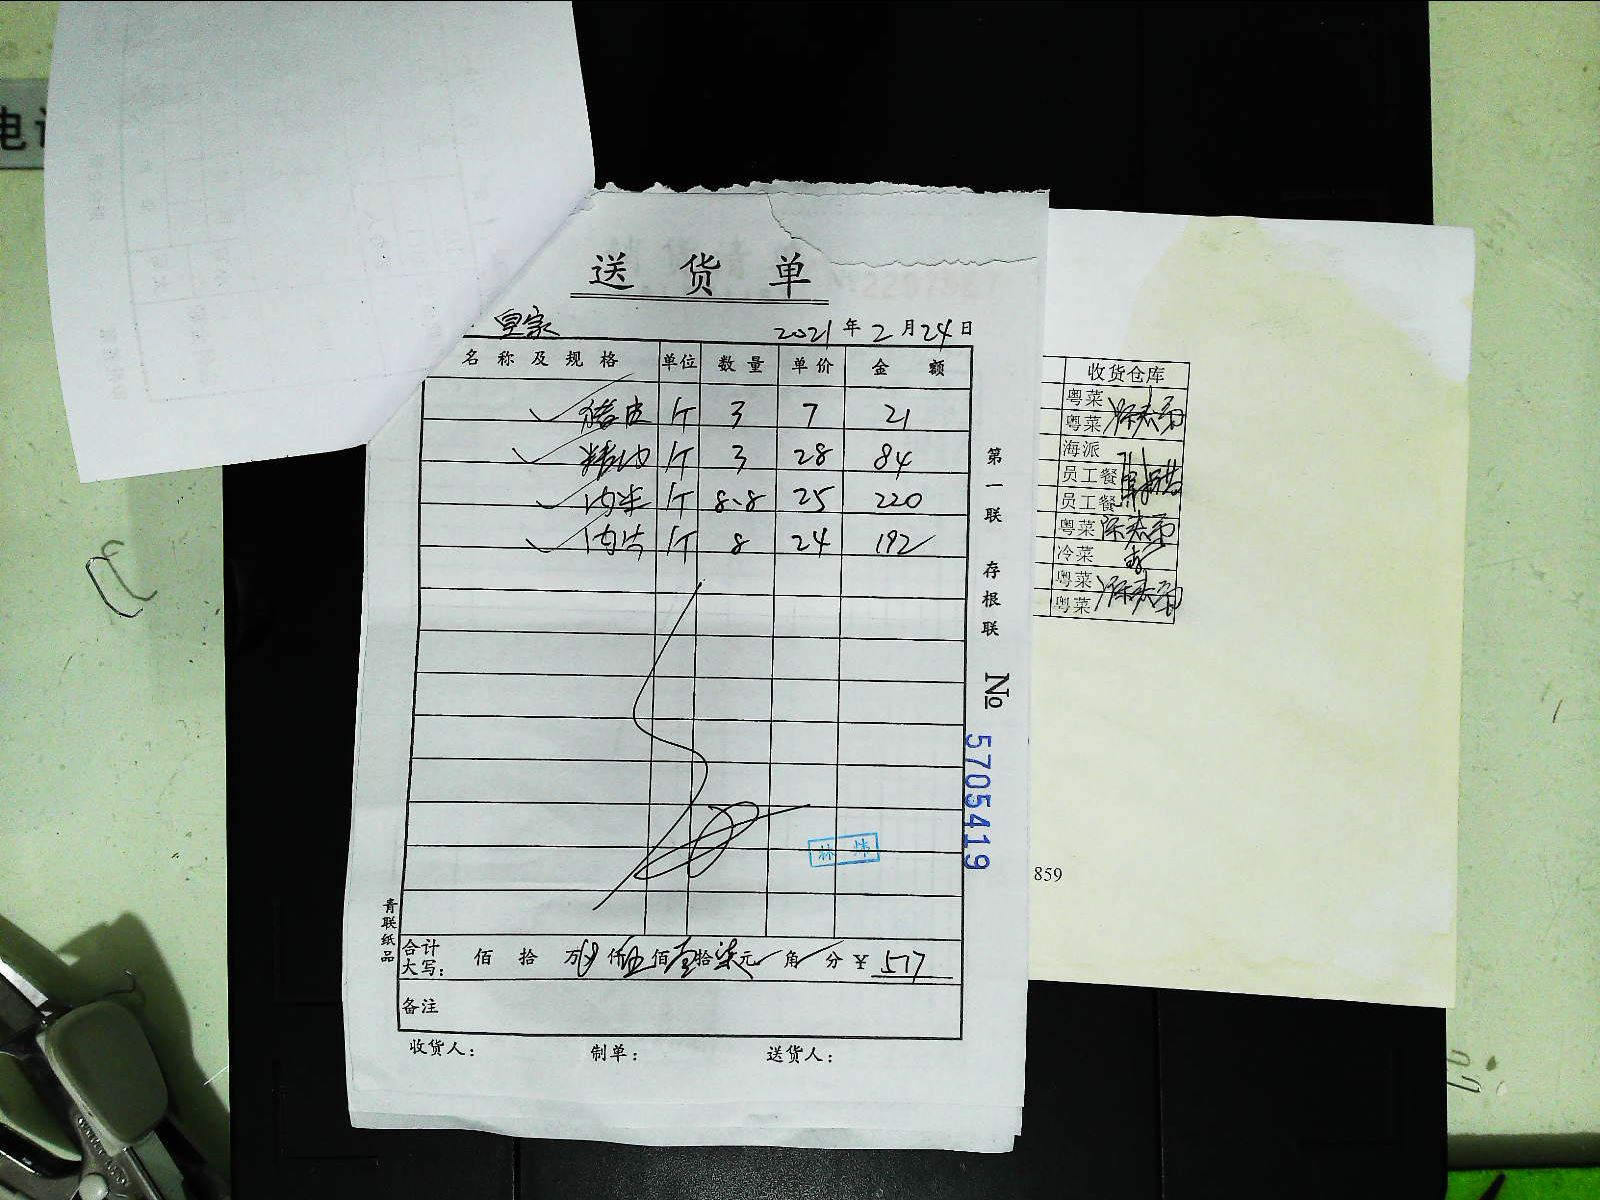 电
送货单
皇家 2021年2月24日
名称及规格 单位 数量 单价 金额
猪皮 斤 3 7 21
精肉 斤 3 28 84
肉米 斤 8.8 25 220
肉片 斤 8 24 192
第一联 存根联
No 5705419
林炜
青联纸品
合计大写: 佰 拾 万 仟伍佰壹拾柒元 角 分 ¥ 517
备注
收货人: 制单: 送货人:
收货仓库
粤菜
粤菜
海派
员工餐
员工餐
粤菜
冷菜
粤菜
粤菜
859